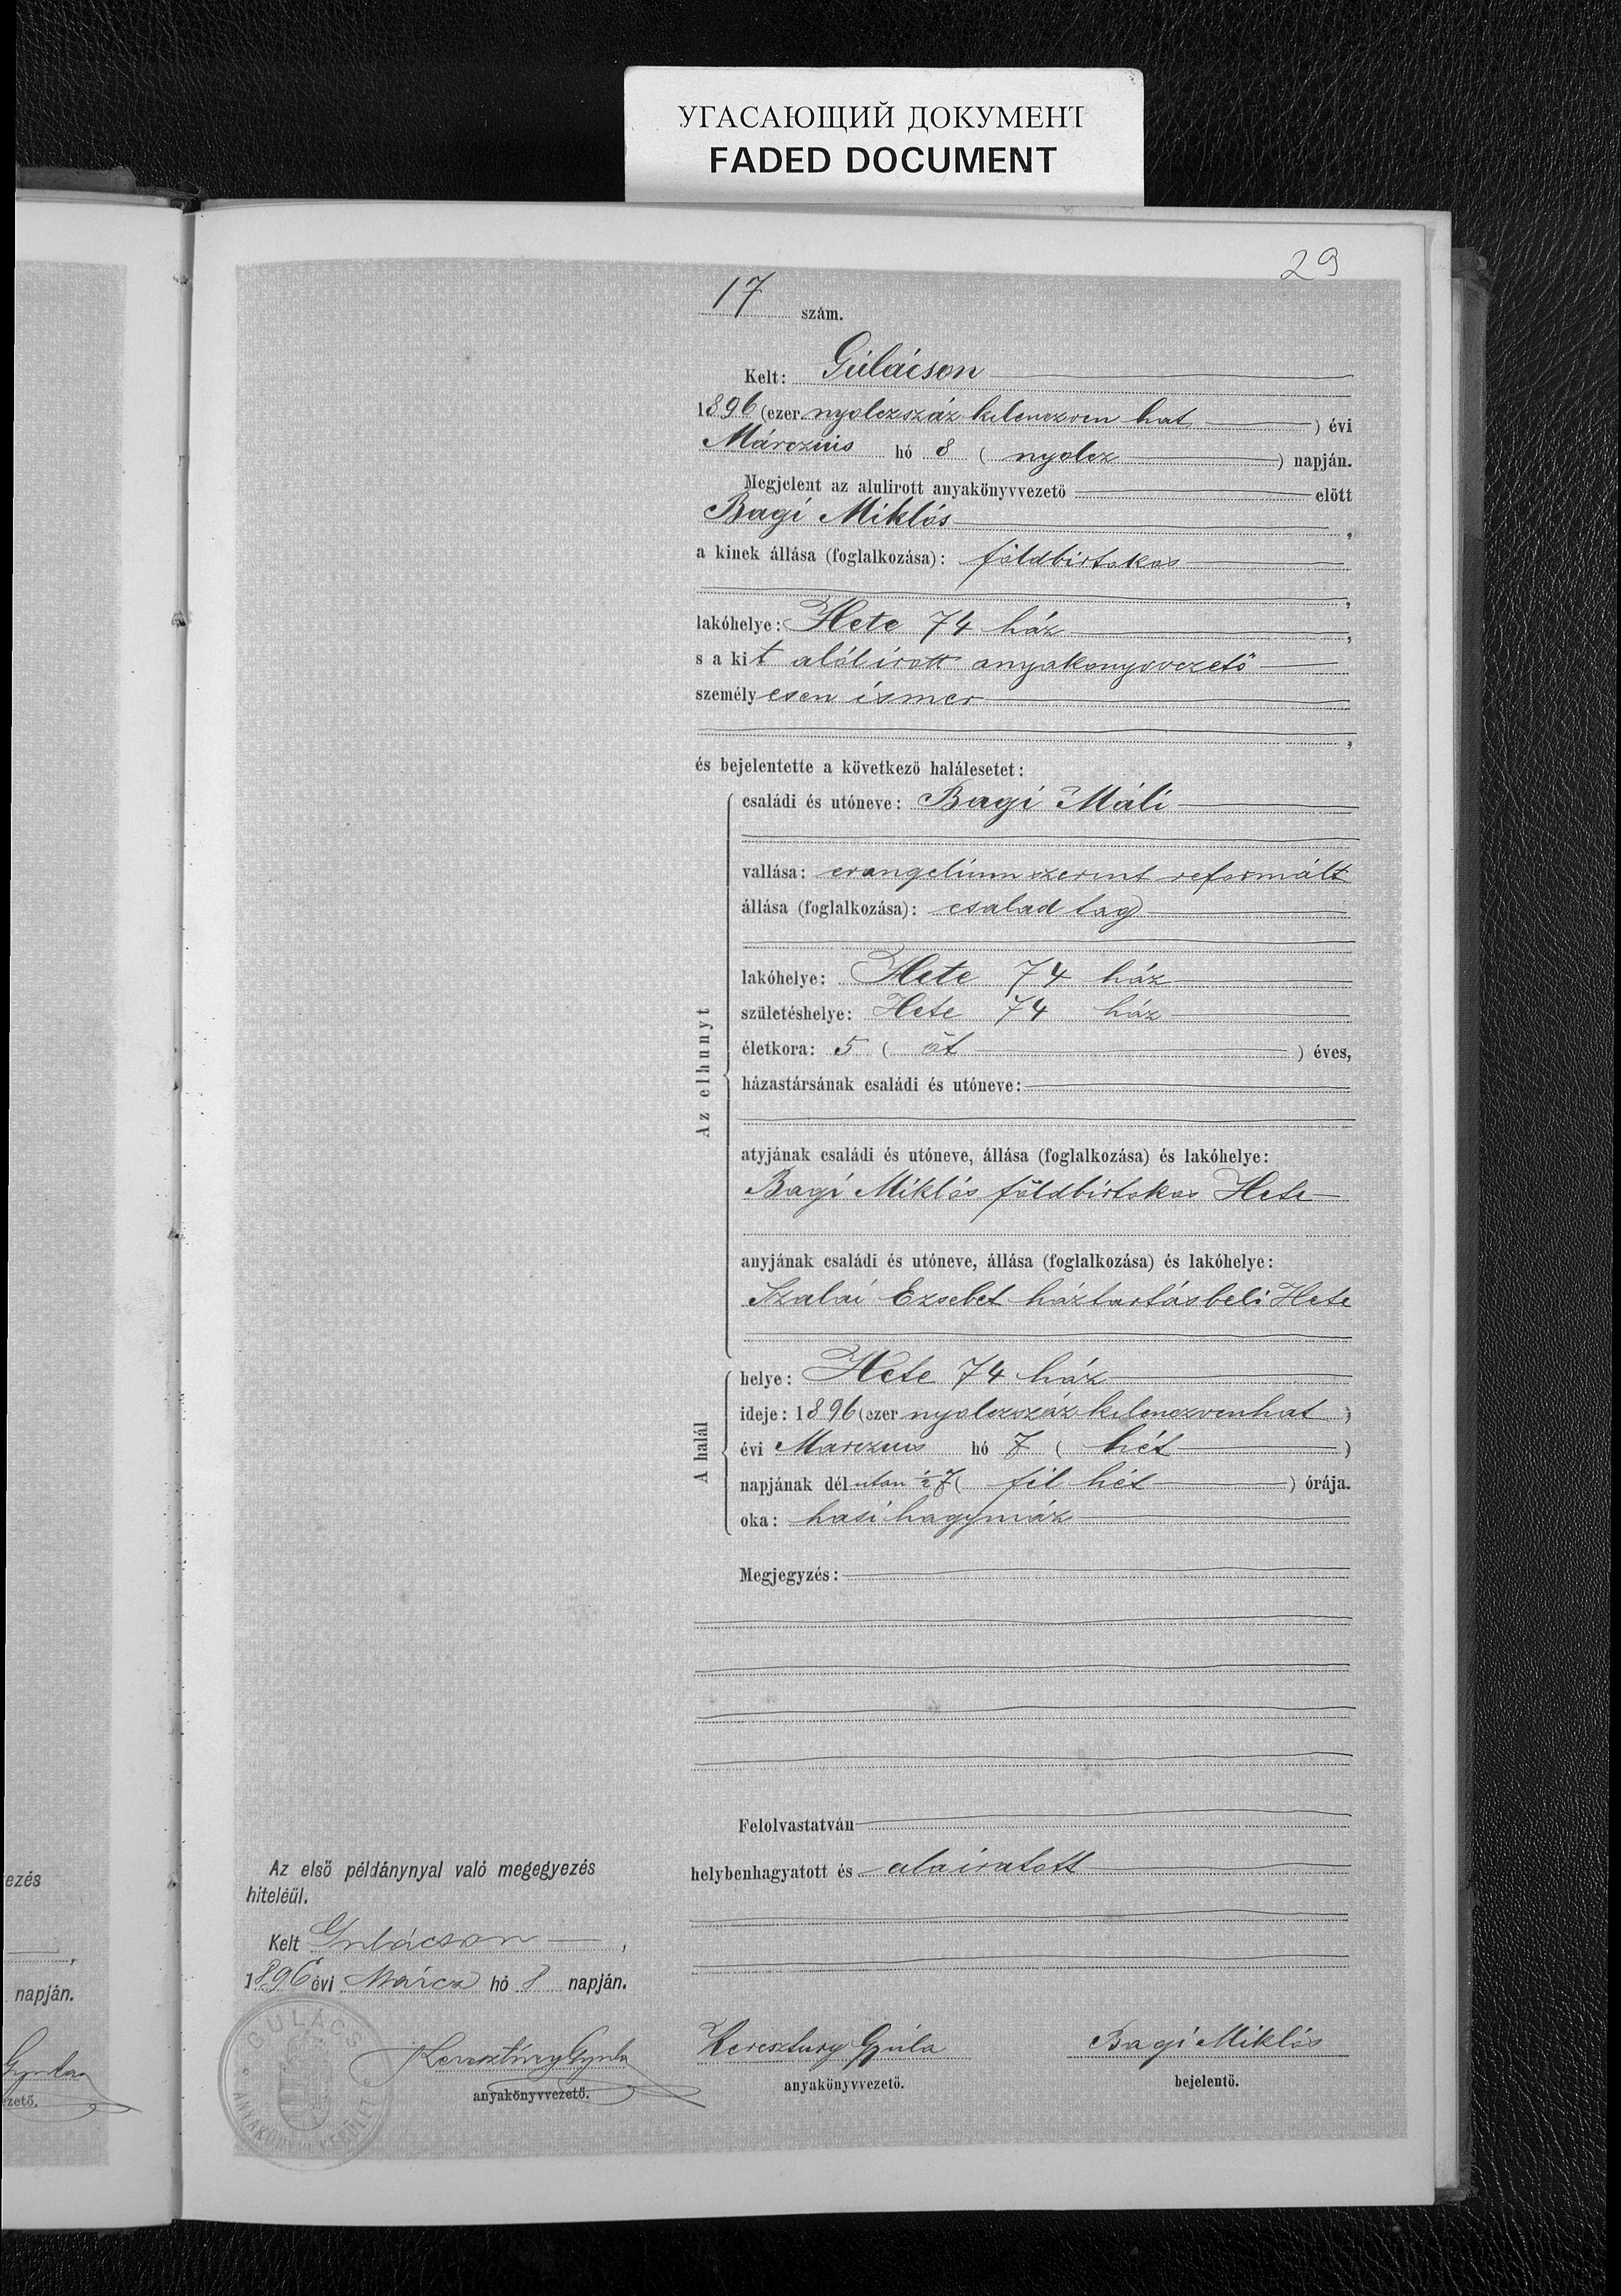 УГАСАЮЩИЙ ДОКУМЕНТ
FADED DOCUMENT
29
17 szám.
Kelt: Gulácson
1896 (ezer nyolczszáz kilenczven hat) évi
Márczius hó 8 (nyolcz) napján.
Megjelent az alulirott anyakönyvvezető előtt
Bagi Miklós,
a kinek állása (foglalkozása): földbirtokos
,
lakóhelye: Hete 74 ház,
s a kit alólirott anyakönyvvezető
személyesen ismer
,
és bejelentette a következő halálesetet:
Az elhunyt
családi és utóneve: Bagi Máli
vallása: evangelium szerint reformált
állása (foglalkozása): család tag
lakóhelye: Hete 74 ház
születéshelye: Hete 74 ház
életkora: 5 (öt) éves,
házastársának családi és utóneve:
atyjának családi és utóneve, állása (foglalkozása) és lakóhelye:
Bagi Miklós földbirtokos Hete
anyjának családi és utóneve, állása (foglalkozása) és lakóhelye:
Szalai Ezsebet háztartásbeli Hete
A halál
helye: Hete 74 ház
ideje: 1896 (ezer nyolczszáz kilenczvenhat)
évi Marczius hó 7 (hét)
napjának dél utan ½ 7 (fél hét) órája.
oka: hasi hagymáz
Megjegyzés:
Felolvastatván
helybenhagyatott és alairatott
Az első példánynyal való megegyezés
hiteléül.
Kelt Gulácson,
1896 évi Márcz hó 8 napján.
GULÁCS
ANYAKÖNYVI KERÜLET
Keresztury Gyula
anyakönyvvezető.
Keresztury Gyula
anyakönyvvezető.
Bagi Miklós
bejelentő.
ezés
,
napján.
Gyula
ezető.